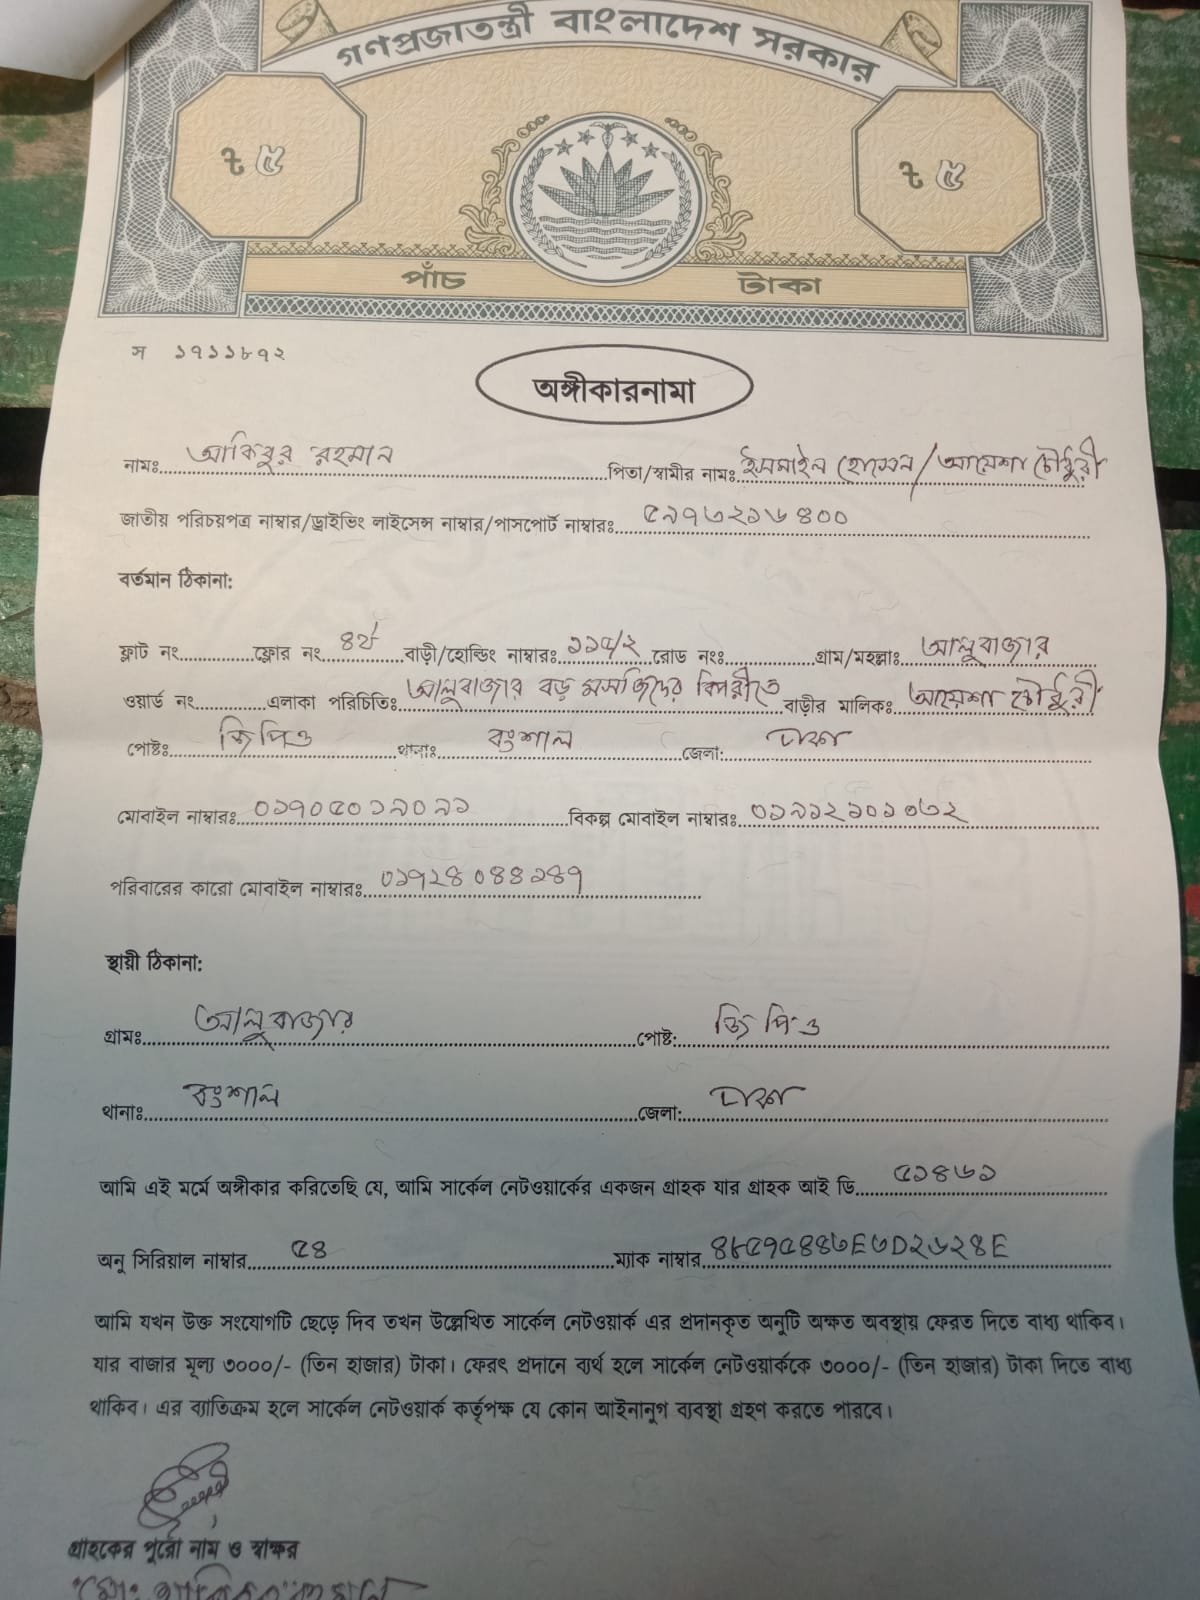 গণপ্রজাতন্ত্রী বাংলাদেশ সরকার
৳ ৫ ৳ ৫
পাঁচ টাকা
স ১৭১১৮৭২
অঙ্গীকারনামা
নামঃ আকিবুর রহমান পিতা/স্বামীর নামঃ ইসমাইল হোসেন / আয়েশা চৌধুরী
জাতীয় পরিচয়পত্র নাম্বার/ড্রাইভিং লাইসেন্স নাম্বার/পাসপোর্ট নাম্বারঃ ৫৯৭৩২১৬৪০০
বর্তমান ঠিকানা:
ফ্লাট নং ফ্লোর নং ৪র্থ বাড়ী/হোল্ডিং নাম্বারঃ রোড নংঃ গ্রাম/মহল্লাঃ আলুবাজার
ওয়ার্ড নং এলাকা পরিচিতিঃ আলুবাজার বড় মসজিদের বিপরীতে বাড়ীর মালিকঃ আয়েশা চৌধুরী
পোষ্টঃ জিপিও থানাঃ বংশাল জেলা: ঢাকা
মোবাইল নাম্বারঃ ০১৭০৫০১৯০৯১ বিকল্প মোবাইল নাম্বারঃ
পরিবারের কারো মোবাইল নাম্বারঃ ০১৭২৪০৪৪১৪৭
স্থায়ী ঠিকানা:
গ্রামঃ আলুবাজার পোষ্ট: জিপিও
থানাঃ বংশাল জেলা: ঢাকা
আমি এই মর্মে অঙ্গীকার করিতেছি যে, আমি সার্কেল নেটওয়ার্কের একজন গ্রাহক যার গ্রাহক আই ডি ৫১৪৬১
অনু সিরিয়াল নাম্বার ৫৪ ম্যাক নাম্বার
আমি যখন উক্ত সংযোগটি ছেড়ে দিব তখন উল্লেখিত সার্কেল নেটওয়ার্ক এর প্রদানকৃত অনুটি অক্ষত অবস্থায় ফেরত দিতে বাধ্য থাকিব।
যার বাজার মূল্য ৩০০০/- (তিন হাজার) টাকা। ফেরৎ প্রদানে ব্যর্থ হলে সার্কেল নেটওয়ার্ককে ৩০০০/- (তিন হাজার) টাকা দিতে বাধ্য
থাকিব। এর ব্যাতিক্রম হলে সার্কেল নেটওয়ার্ক কর্তৃপক্ষ যে কোন আইনানুগ ব্যবস্থা গ্রহণ করতে পারবে।
গ্রাহকের পুরো নাম ও স্বাক্ষর